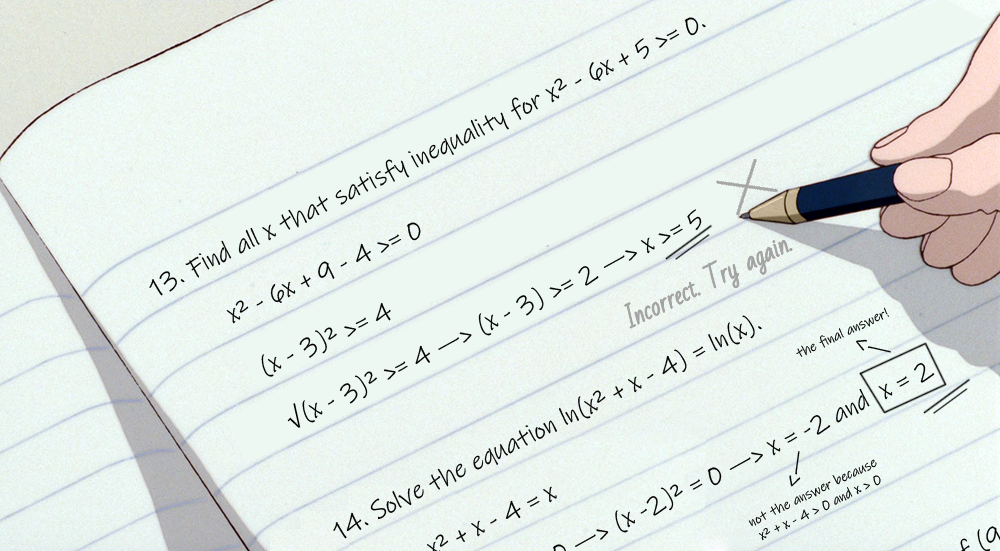 13. Find all x that satisfy inequality for x² - 6x + 5 >= 0.
x² - 6x + 9 - 4 >= 0
(x - 3)² >= 4
√(x - 3)² >= 4 —> (x - 3) >= 2 —> x >= 5
Incorrect. Try again.
14. Solve the equation ln(x² + x - 4) = ln(x).
x² + x - 4 = x
0 —> (x -2)² = 0 —> x = -2 and x = 2
the final answer!
not the answer because
x² + x - 4 > 0 and x > 0